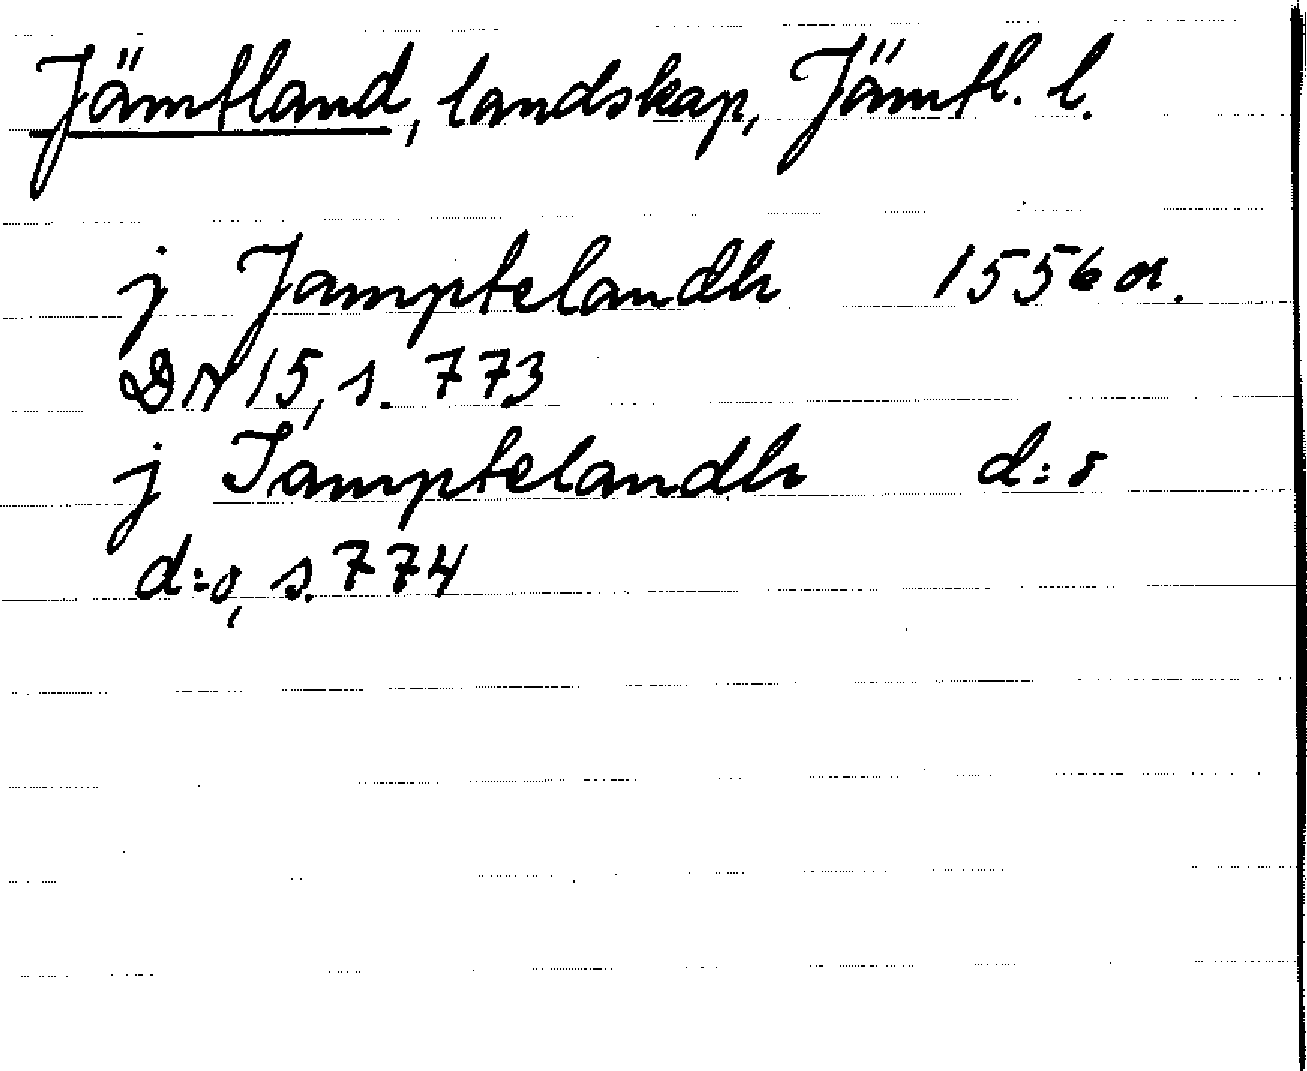 Jämtland, landskap, Jämtl. l.
j Jamptelandh 1556 or.
DN 15, s. 773
j Jamptelandh d:o
d:o, s. 774